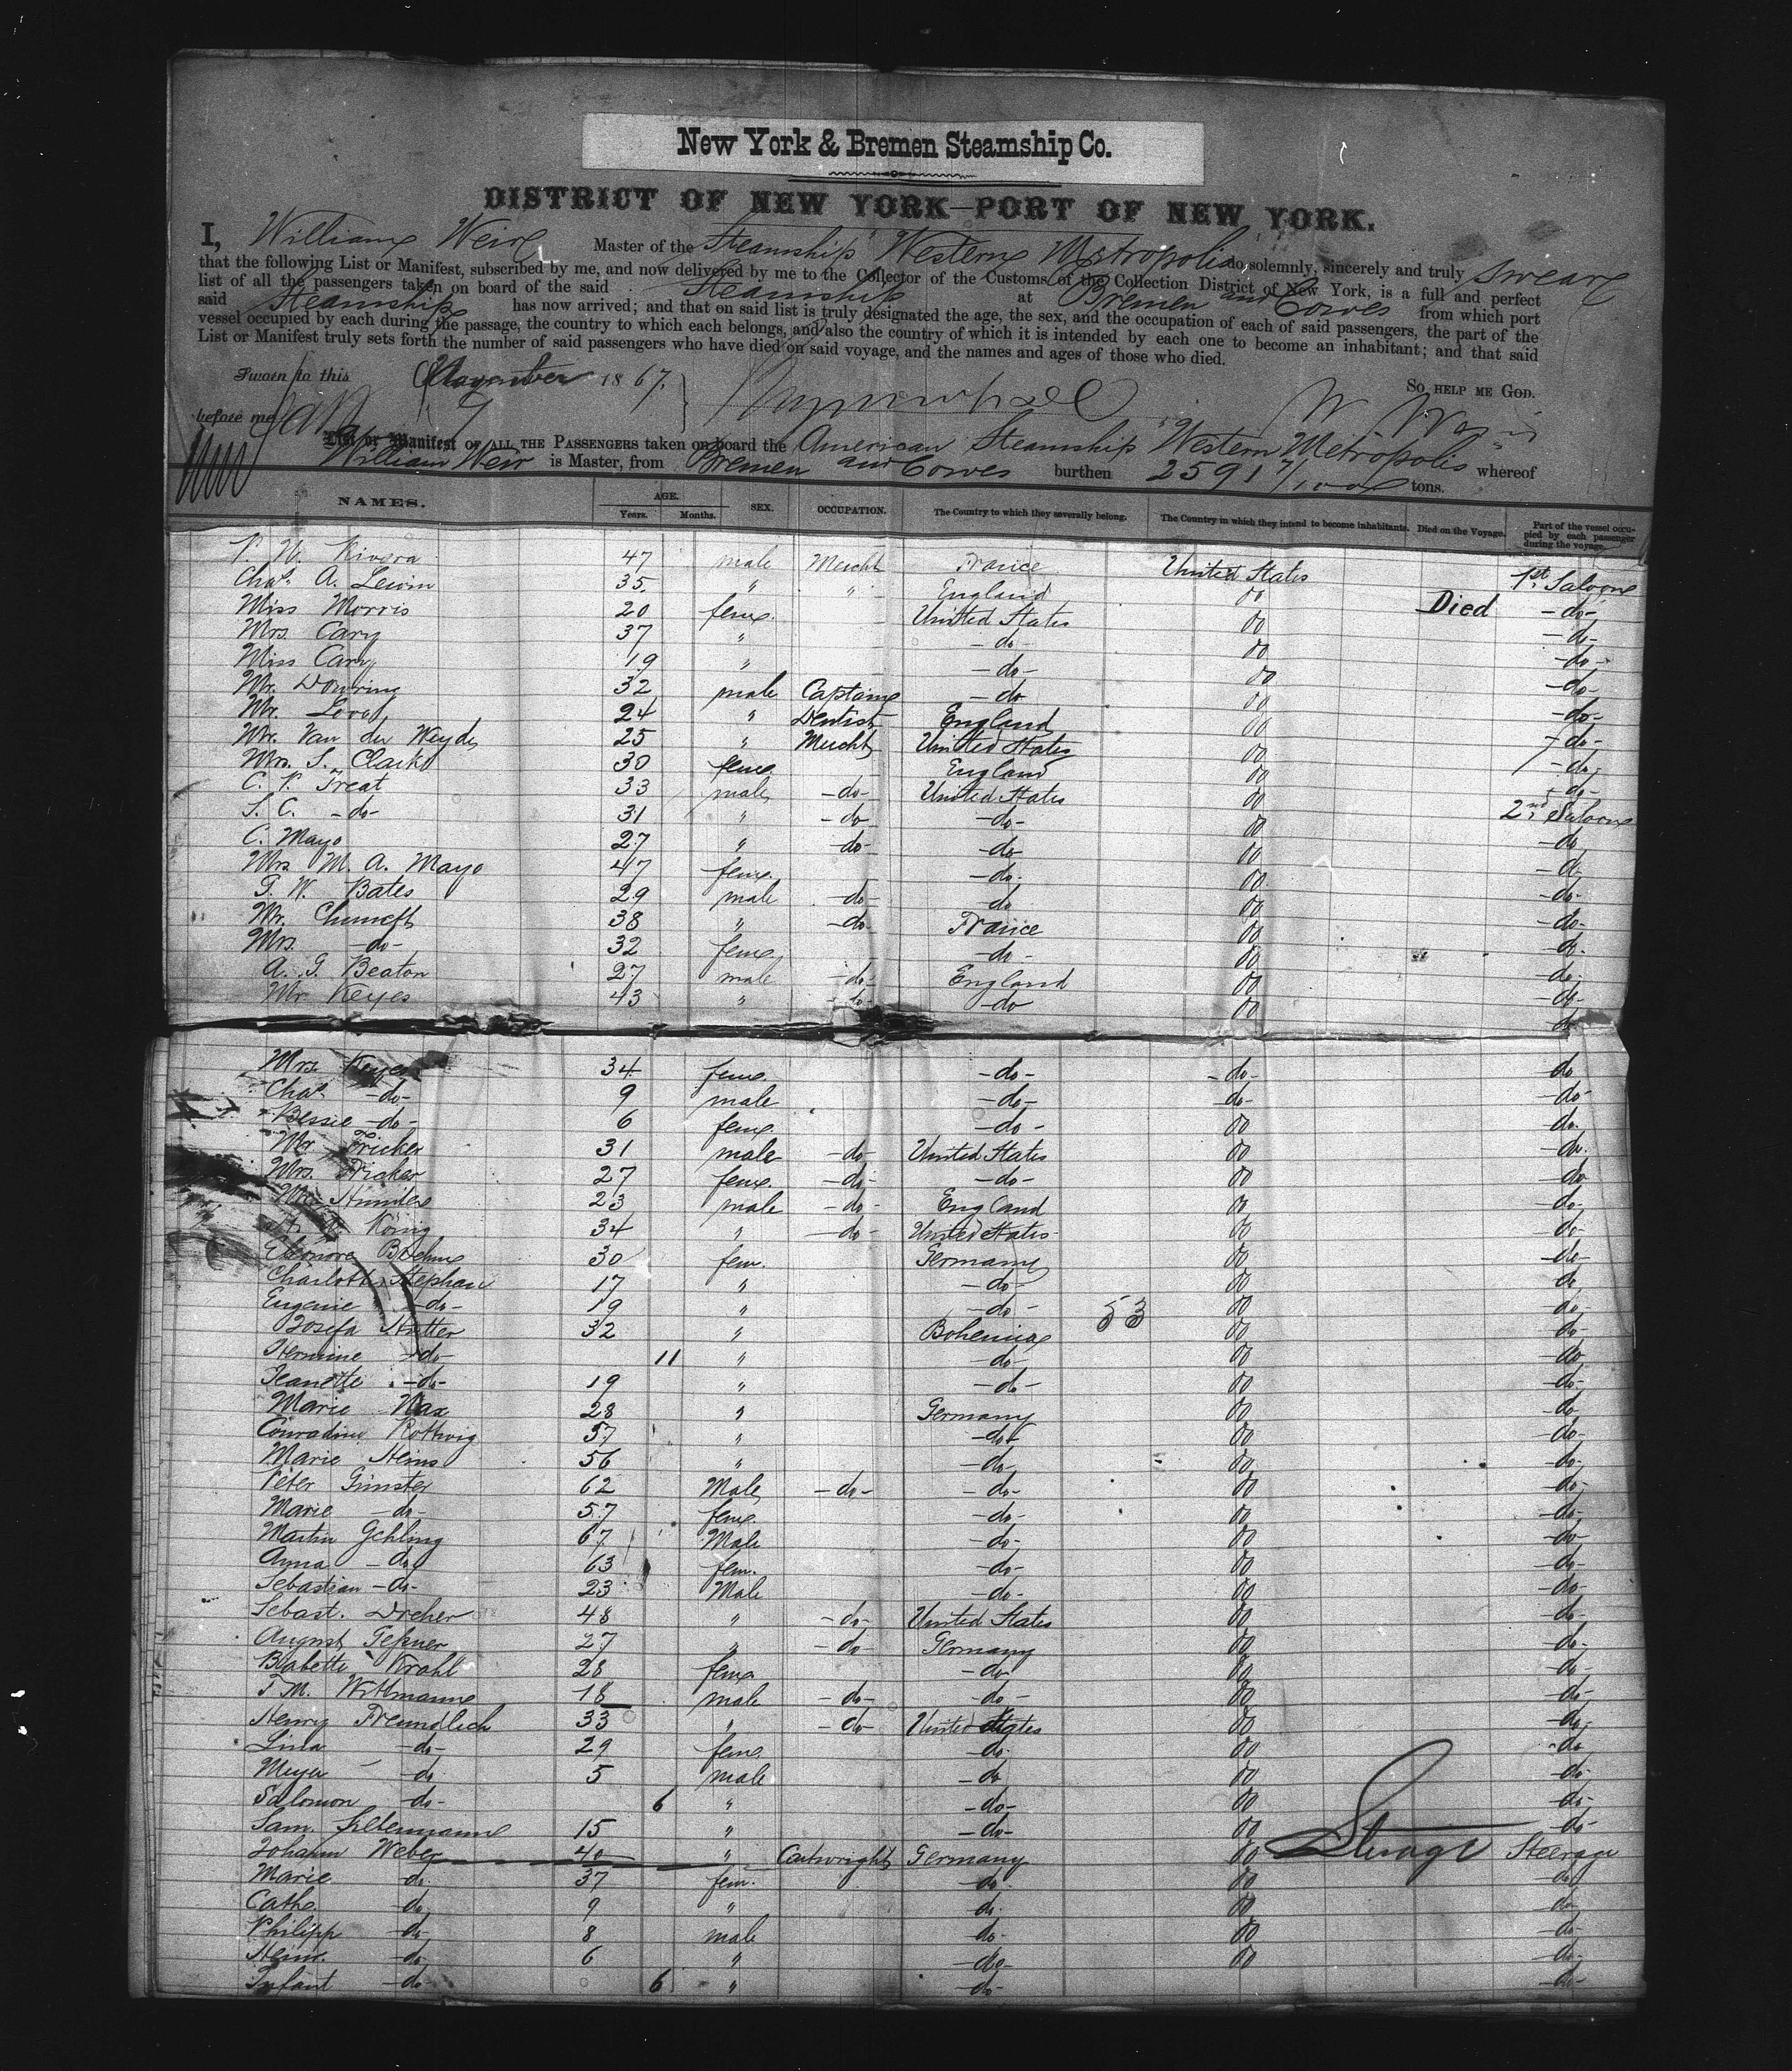 New York & Bremen Steamship Co.
DISTRICT OF NEW YORK—PORT OF NEW YORK.
I, William Weir Master of the Steamship "Western Metropolis" do solemnly, sincerely and truly swear
that the following List or Manifest, subscribed by me, and now delivered by me to the Collector of the Customs of the Collection District of New York, is a full and perfect
list of all the passengers taken on board of the said Steamship at Bremen and Cowes from which port
said Steamship has now arrived; and that on said list is truly designated the age, the sex, and the occupation of each of said passengers, the part of the
vessel occupied by each during the passage, the country to which each belongs, and also the country of which it is intended by each one to become an inhabitant; and that said
List or Manifest truly sets forth the number of said passengers who have died on said voyage, and the names and ages of those who died.
So HELP ME GOD.
Sworn to this November 1867.
before me W. Weir
List or Manifest OF ALL THE PASSENGERS taken on board the American Steamship "Western Metropolis" whereof
William Weir is Master, from Bremen and Cowes burthen 2591 7/100 tons.
NAMES. AGE. Years. Months. SEX. OCCUPATION. The Country to which they severally belong. The Country in which they intend to become inhabitants. Died on the Voyage. Part of the vessel occupied by each passenger during the voyage.
Rivera 47 male Mercht France United States 1st Saloon
Chas. A. Lewin 35 " " England do -do-
Miss Morris 20 fem. United States do Died -do-
Mrs. Cary 37 " -do do -do-
Miss Cary 19 " -do- do -do-
Mr. Dowring 32 male Captain -do do -do-
Mr. 24 " Dentist England do -do-
Mr. Van der Weyde 25 " Mercht United States do -do-
Mrs. S. Clarke 30 fem. England do -do-
C. P. Treat 33 male -do- United States do 2nd Saloon
S. C. -do- 31 " -do -do- do -do
C. Mayo 27 " do- -do do -do
Mrs. M. A. Mayo 47 fem. -do- do -do-
G. W. Bates 29 male -do- do do -do-
Mr. 38 " -do France do do-
Mrs. -do- 32 fem. -do- do do-
A. G. Beaton 27 male -do- England do -do-
Mr Keyes 43 " do- -do do do
Mrs. Keyes 34 fem. -do- -do- do
Chas -do- 9 male -do- -do- -do-
Bessie -do- 6 fem. -do- do do.
Mr Fricker 31 male -do- United States do -do.
Mrs. Fricker 27 fem. -do- -do- do -do
23 male -do- England do do-
König 34 " -do- United States do do-
Eleonore Boehme 30 fem. Germany do -do-
Charlotte Stephan 17 " -do- do do
Eugenie -do- 19 " -do- 53 do do
Josefa Hutter 32 " Bohemia do -do-
Hermine -do- 11 " -do- do -do
Jeanette -do- 19 " -do- do -do-
Marie Wax 28 " Germany do -do
Conradine Rottwig 57 " -do- do -do-
Marie Heins 56 " -do- do -do-
Peter Ginster 62 Male -do- -do- do -do-
Marie -do- 57 fem. -do- do -do-
Martin Gehling 67 Male -do- do -do-
Anna -do 63 fem. -do- do -do-
Sebastian -do- 23 Male -do- do -do-
Sebast. Dreher 48 " -do- United States do -do-
August Teßner 27 " -do- Germany do -do-
Babette Krahl 28 fem. -do do -do-
Wittmann 18 male -do- -do- do -do-
Henry Freundlich 33 " -do- United States do -do-
Lina -do- 29 fem. do- do -do
Meyer -do 5 male -do do -do-
Salomon -do- 6 " -do- do -do-
Sam. Liebermann 15 " -do- do -do-
Johann Weber 40 " Cartwright Germany do Steerage Steerage
Marie do. 37 fem. do- do -do
Cathe. do, 9 " do- do -do
Philipp do 8 male do- do -do-
Heinr. do. 6 " -do- do -do-
Infant -do- 6 " -do- -do-